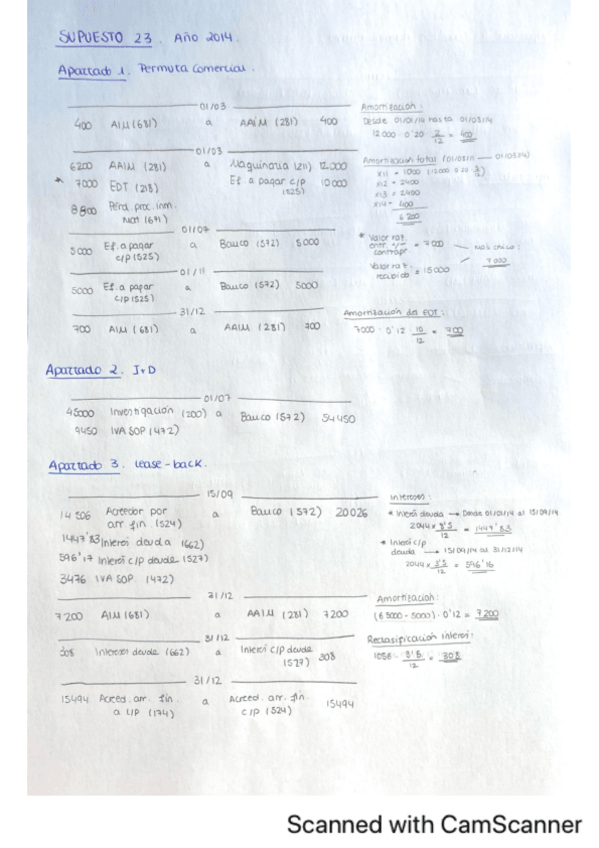 SUPUESTO 23. Año 2014.
Apartado 1. Permuta Comercial.
01/03
400 AIM (681) a AAIM (281) 400
Amortización:
Desde 01/01/14 hasta 01/03/14
12000 · 0'20 · 2/12 = 400
01/03
6200 AAIM (281) a Maquinaria (211) 12.000
* 7000 EDT (218) Ef. a pagar c/p (525) 10000
8800 Pérd. proc. inm. Mat (671)
Amortización total
x12 = 2400
x13 = 2400
x14 = 400
6200
01/07
5000 Ef. a pagar c/p (525) a Banco (572) 5000
* Valor raz. = 7000
Valor raz. recibido = 15000
7000
01/11
5000 Ef. a pagar c/p (525) a Banco (572) 5000
31/12
700 AIM (681) a AAIM (281) 700
Amortización del EDT:
7000 · 0'12 · 10/12 = 700
Apartado 2. I+D
01/07
45000 Investigación (200) a Banco (572) 54450
9450 IVA SOP (472)
Apartado 3. Lease-back.
15/09
14506 Acreedor por arr fin. (524) a Banco (572) 20026
1447'83 Interés deuda (662)
596'17 Interés c/p deuda (527)
3476 IVA SOP. (472)
Intereses:
* Interés deuda → Desde 01/01/14 al 15/09/14
2044 x 8'5/12 = 1447'83
* Interés c/p deuda → 15/09/14 al 31/12/14
2044 x 3'5/12 = 596'16
31/12
7200 AIM (681) a AAIM (281) 7200
Amortización:
(65000 - 5000) · 0'12 = 7200
31/12
308 Intereses deuda (662) a Interés c/p deuda (527) 308
Reclasificación interés:
1056 · 3'5/12 = 308
31/12
15494 Acreed. arr. fin. a l/p (174) a Acreed. arr. fin. c/p (524) 15494
Scanned with CamScanner